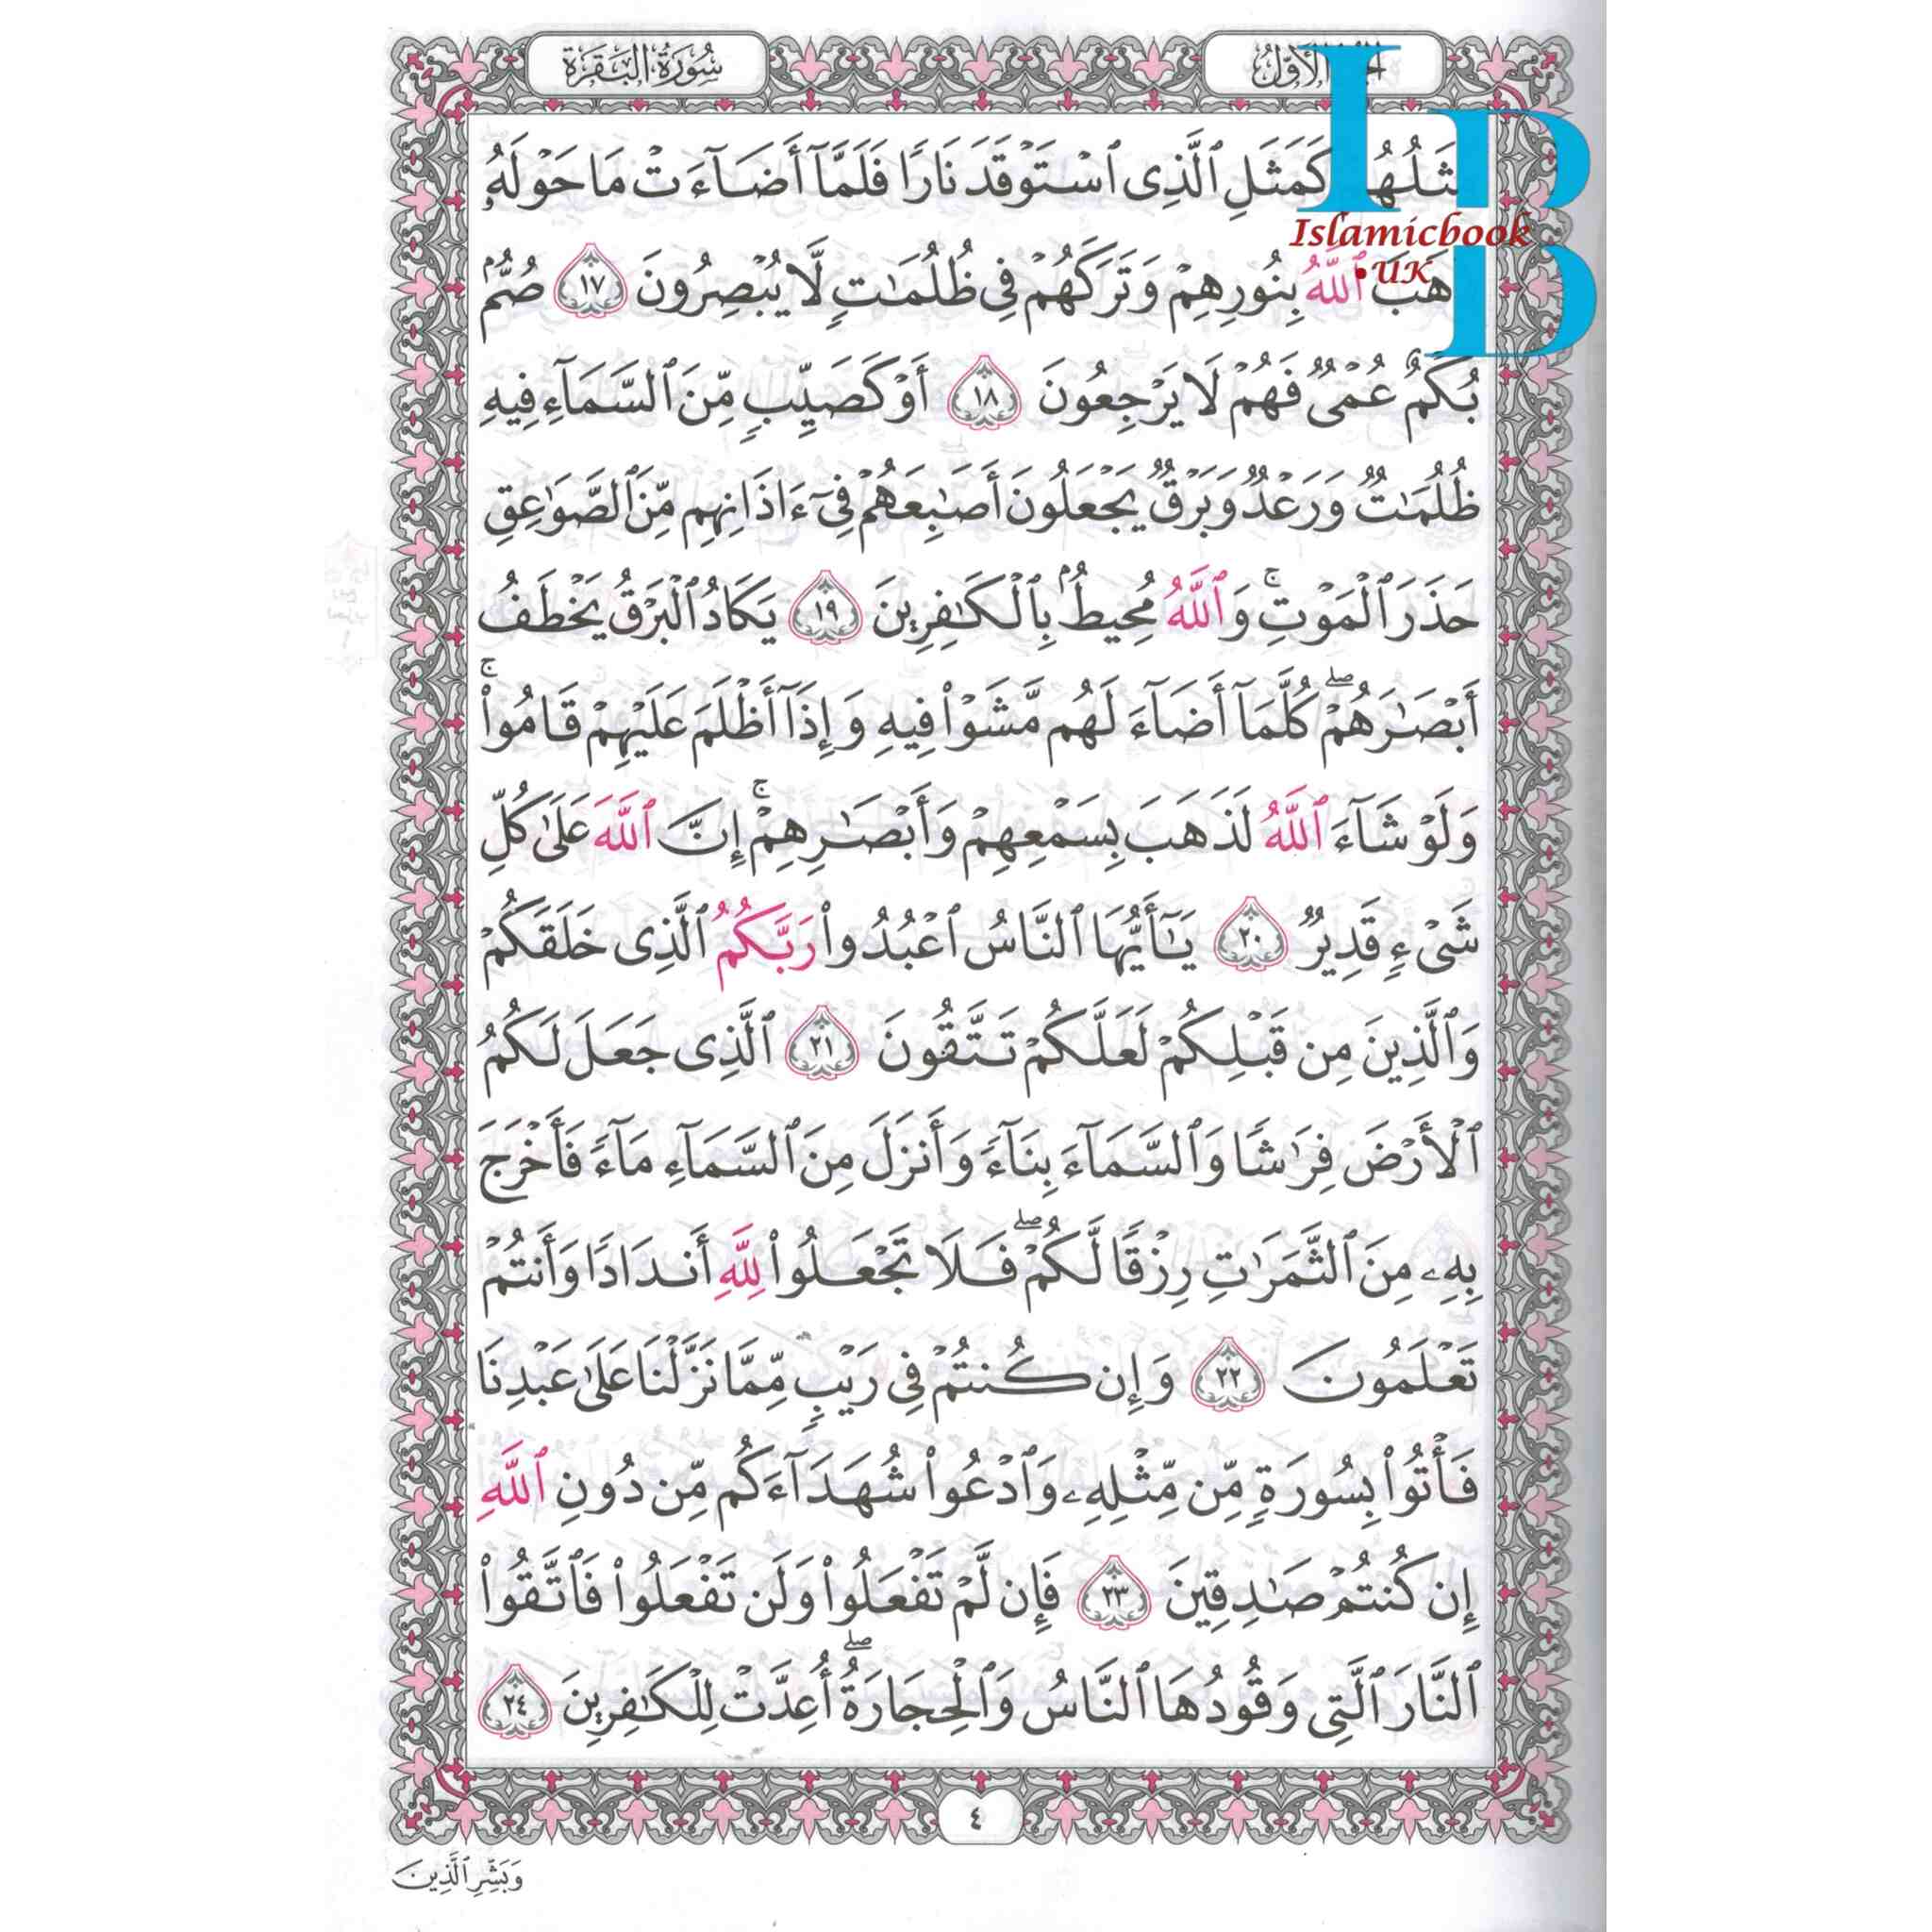 سُورَةُ البَقَرَةِ
الأَوَّلُ
كَمَثَلِ ٱلَّذِى ٱسْتَوْقَدَ نَارًا فَلَمَّآ أَضَآءَتْ مَا حَوْلَهُۥ
ٱللَّهُ بِنُورِهِمْ وَتَرَكَهُمْ فِى ظُلُمَٰتٍ لَّا يُبْصِرُونَ ١٧ صُمٌّۢ
بُكْمٌ عُمْىٌ فَهُمْ لَا يَرْجِعُونَ ١٨ أَوْ كَصَيِّبٍ مِّنَ ٱلسَّمَآءِ فِيهِ
ظُلُمَٰتٌ وَرَعْدٌ وَبَرْقٌ يَجْعَلُونَ أَصَٰبِعَهُمْ فِىٓ ءَاذَانِهِم مِّنَ ٱلصَّوَٰعِقِ
حَذَرَ ٱلْمَوْتِ ۚ وَٱللَّهُ مُحِيطٌۢ بِٱلْكَٰفِرِينَ ١٩ يَكَادُ ٱلْبَرْقُ يَخْطَفُ
أَبْصَٰرَهُمْ ۖ كُلَّمَآ أَضَآءَ لَهُم مَّشَوْا۟ فِيهِ وَإِذَآ أَظْلَمَ عَلَيْهِمْ قَامُوا۟ ۚ
وَلَوْ شَآءَ ٱللَّهُ لَذَهَبَ بِسَمْعِهِمْ وَأَبْصَٰرِهِمْ ۚ إِنَّ ٱللَّهَ عَلَىٰ كُلِّ
شَىْءٍ قَدِيرٌ ٢٠ يَٰٓأَيُّهَا ٱلنَّاسُ ٱعْبُدُوا۟ رَبَّكُمُ ٱلَّذِى خَلَقَكُمْ
وَٱلَّذِينَ مِن قَبْلِكُمْ لَعَلَّكُمْ تَتَّقُونَ ٢١ ٱلَّذِى جَعَلَ لَكُمُ
ٱلْأَرْضَ فِرَٰشًا وَٱلسَّمَآءَ بِنَآءً وَأَنزَلَ مِنَ ٱلسَّمَآءِ مَآءً فَأَخْرَجَ
بِهِۦ مِنَ ٱلثَّمَرَٰتِ رِزْقًا لَّكُمْ ۖ فَلَا تَجْعَلُوا۟ لِلَّهِ أَندَادًا وَأَنتُمْ
تَعْلَمُونَ ٢٢ وَإِن كُنتُمْ فِى رَيْبٍ مِّمَّا نَزَّلْنَا عَلَىٰ عَبْدِنَا
فَأْتُوا۟ بِسُورَةٍ مِّن مِّثْلِهِۦ وَٱدْعُوا۟ شُهَدَآءَكُم مِّن دُونِ ٱللَّهِ
إِن كُنتُمْ صَٰدِقِينَ ٢٣ فَإِن لَّمْ تَفْعَلُوا۟ وَلَن تَفْعَلُوا۟ فَٱتَّقُوا۟
ٱلنَّارَ ٱلَّتِى وَقُودُهَا ٱلنَّاسُ وَٱلْحِجَارَةُ ۖ أُعِدَّتْ لِلْكَٰفِرِينَ ٢٤
٤
وَبَشِّرِ ٱلَّذِينَ
IB
Islamicbook
.UK